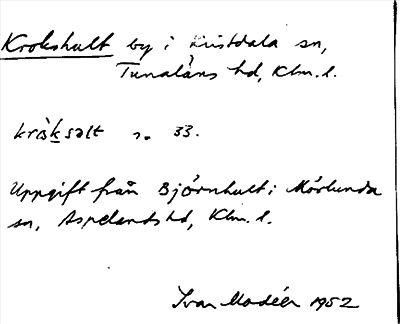 Krokshult by i Kristdala sn,
Tunaläns hd, Klm. l.
kråksalt s. 33.
Uppgift från Björnhult i Mörlunda
sn, Aspelands hd, Klm. l.
Ivar Modéer 1952